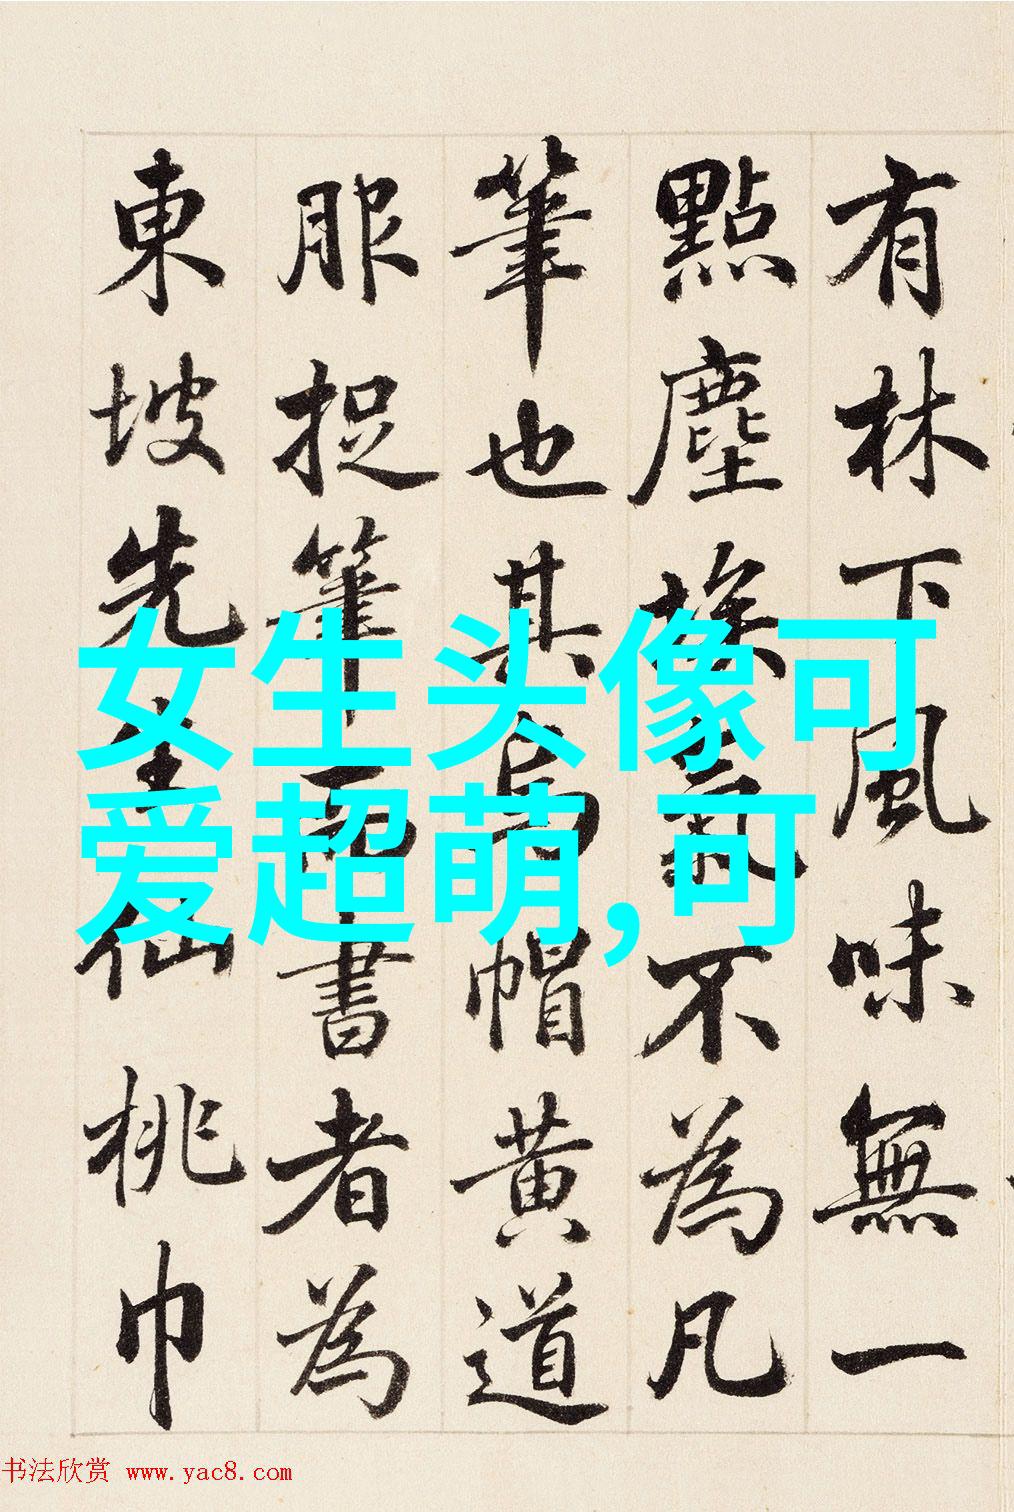 有林下風味無一
點塵埃氣不為凡
筆也其烏帽黃道
服捉筆而書者為
東坡先生仙桃巾
女生头像可
爱超萌,可
书法欣赏 www.yac8.com